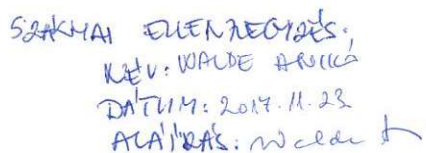 SZAKMAI ELLENJEGYZÉS:
NÉV: WALDE ANIKÓ
DÁTUM: 2017.11.23
ALÁÍRÁS: Walde A